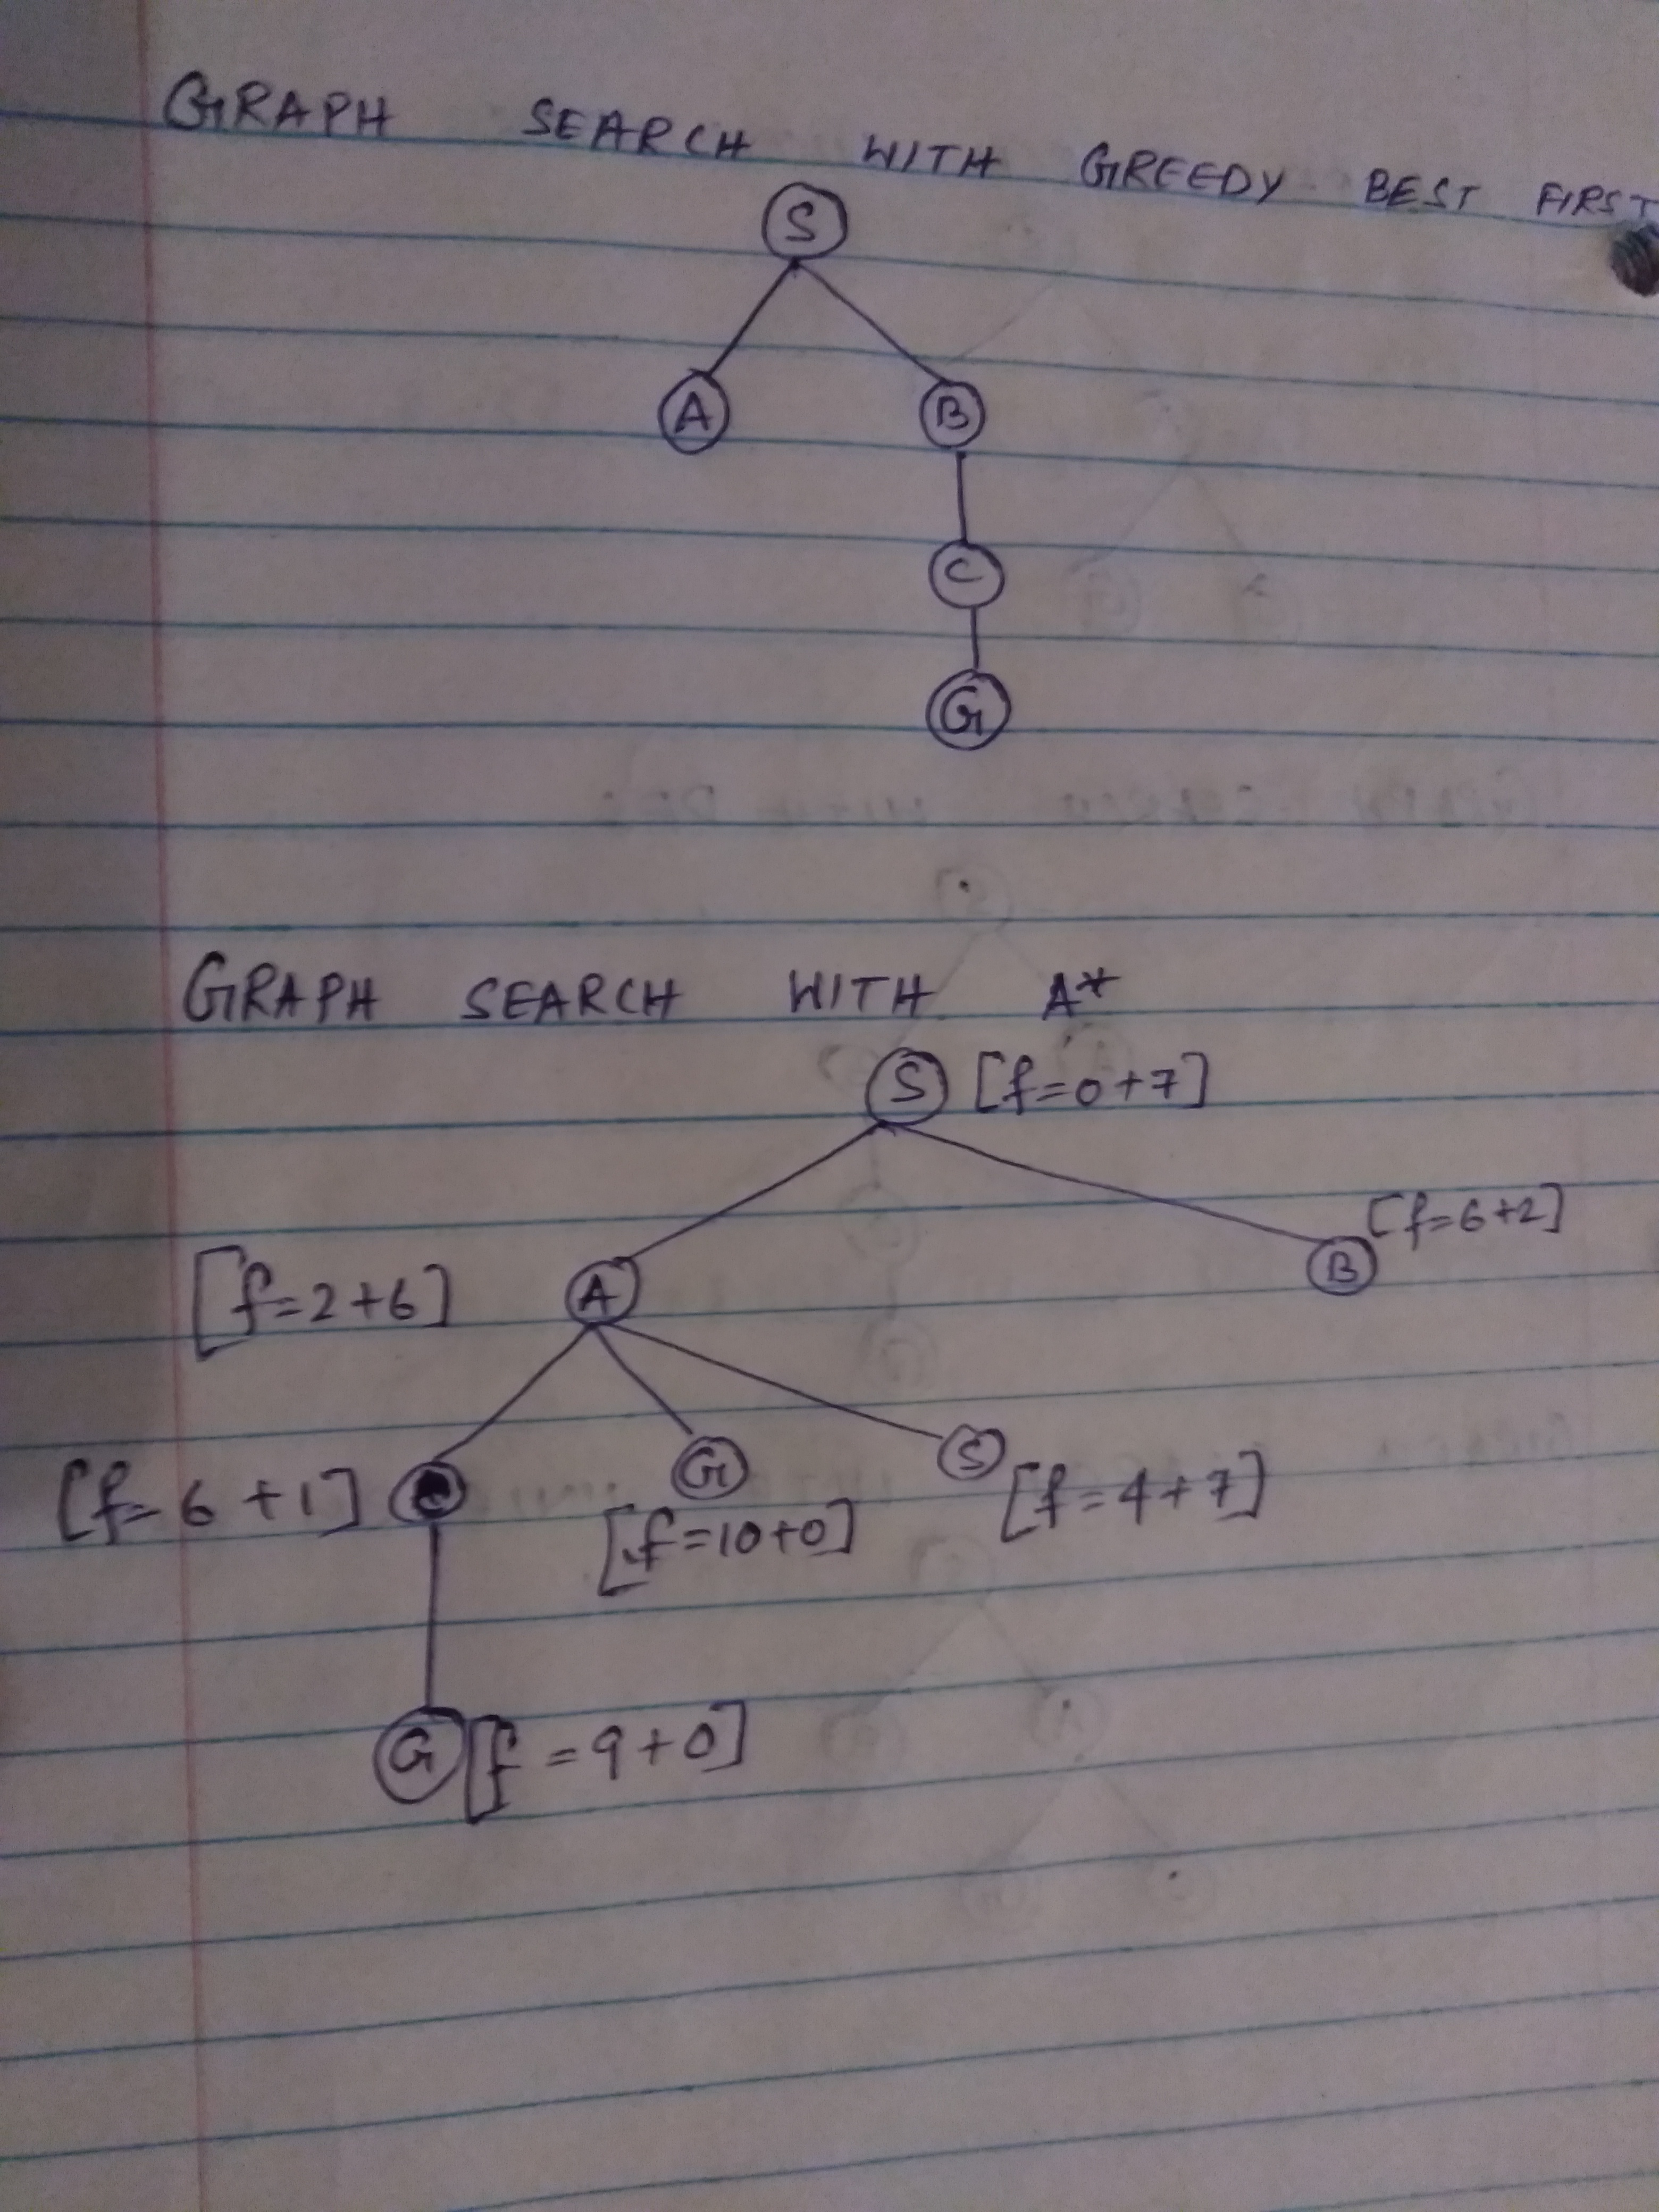 GRAPH SEARCH WITH GREEDY BEST FIRST
S
A B
C
G
GRAPH SEARCH WITH A*
S [f=0+7]
[f=6+2]
[f=2+6] A B
[f=6+1] G S
[f=10+0] [f=4+7]
G [f=9+0]